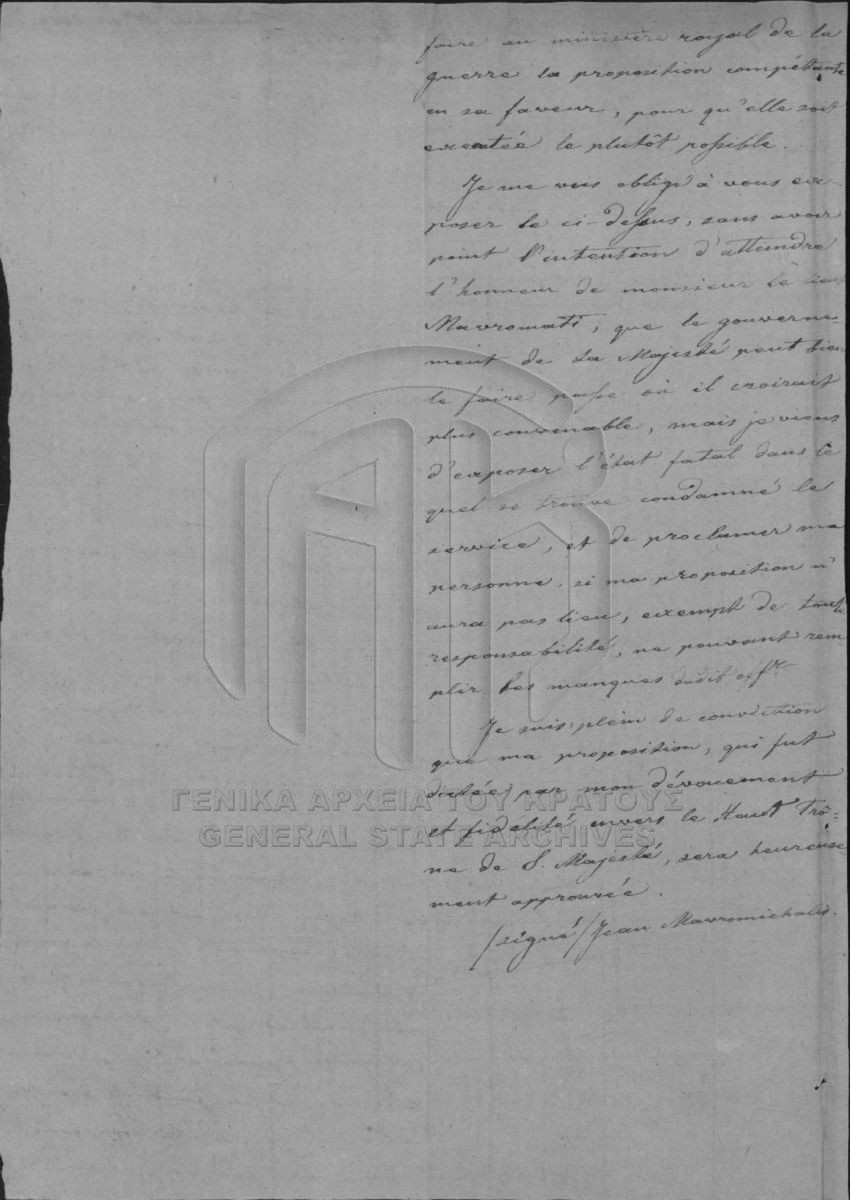 faire au ministère royal de la
guerre la proposition compétante
en sa faveur, pour qu'elle soit
executée le plutôt possible.
Je me vois obligé à vous ex-
poser le ci-dessus, sans avoir
point l'intention d'atteindre
l'honneur de monsieur le lieut
Mavromati, que le gouverne-
ment de Sa Majesté peut bien
le faire passe où il croirait
plus convenable, mais je viens
d'exposer l'état fatal dans le
quel se trouve condamné le
service, et de proclamer ma
personne, si ma proposition n'
aura pas lieu, exempt de toute
responsabilité, ne pouvant rem-
plir les manques dudit offr.
Je suis plein de conviction
que ma proposition, qui fut
dictée par mon dévouement
et fidélité envers le Haut Trô-
ne de S. Majesté, sera heureuse-
ment approuvée.
/signé/ Jean Mavromichalis.
ΓΕΝΙΚΑ ΑΡΧΕΙΑ ΤΟΥ ΚΡΑΤΟΥΣ
GENERAL STATE ARCHIVES